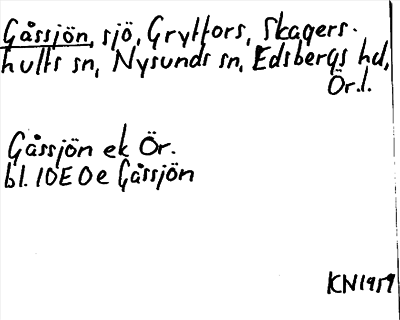 Gåssjön, sjö, Grytfors, Skagers-
hults sn, Nysunds sn, Edsbergs hd,
Ör.l.
Gåssjön ek Ör.
bl. 10E0e Gåssjön
KN1959